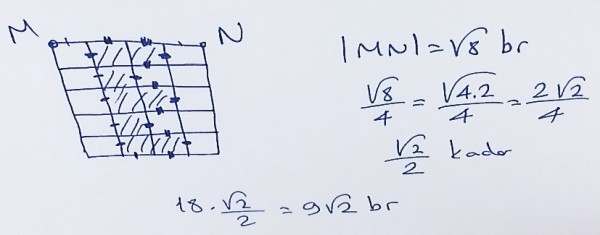 M N
|MN| = √8 br
√8/4 = √4.2/4 = 2√2/4
√2/2 kadar
18 . √2/2 = 9√2 br